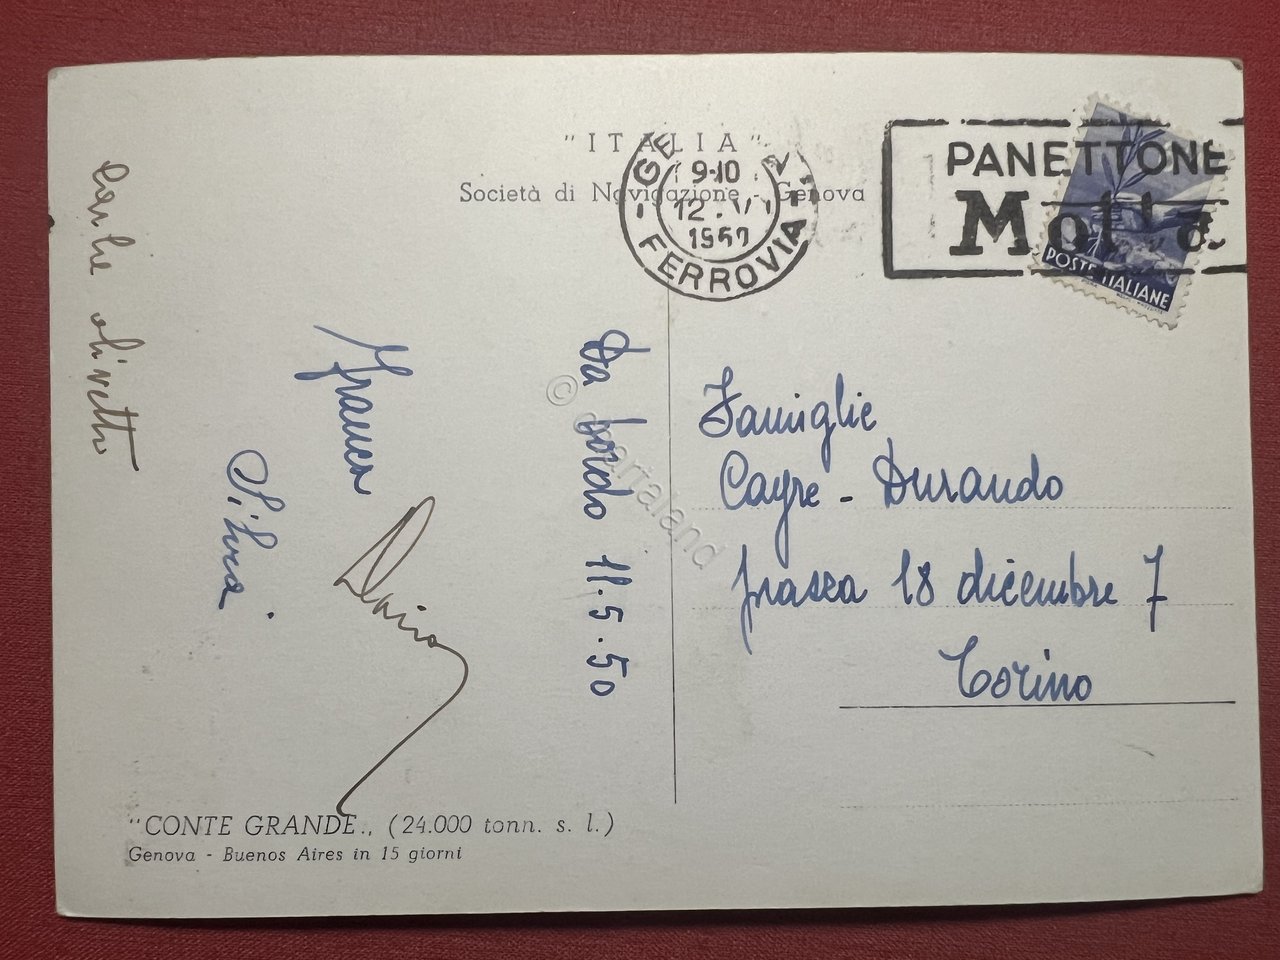 "ITALIA"
Società di Navigazione - Genova
GE
9-10
12.V
FERROVIA
PANETTONE
Motta
POSTE ITALIANE
Da bordo 11.5.50
Franca
Silvia.
Famiglie
Cayre - Durando
18 dicembre 7
Torino
"CONTE GRANDE„ (24.000 tonn. s. l.)
Genova - Buenos Aires in 15 giorni
© cartaland